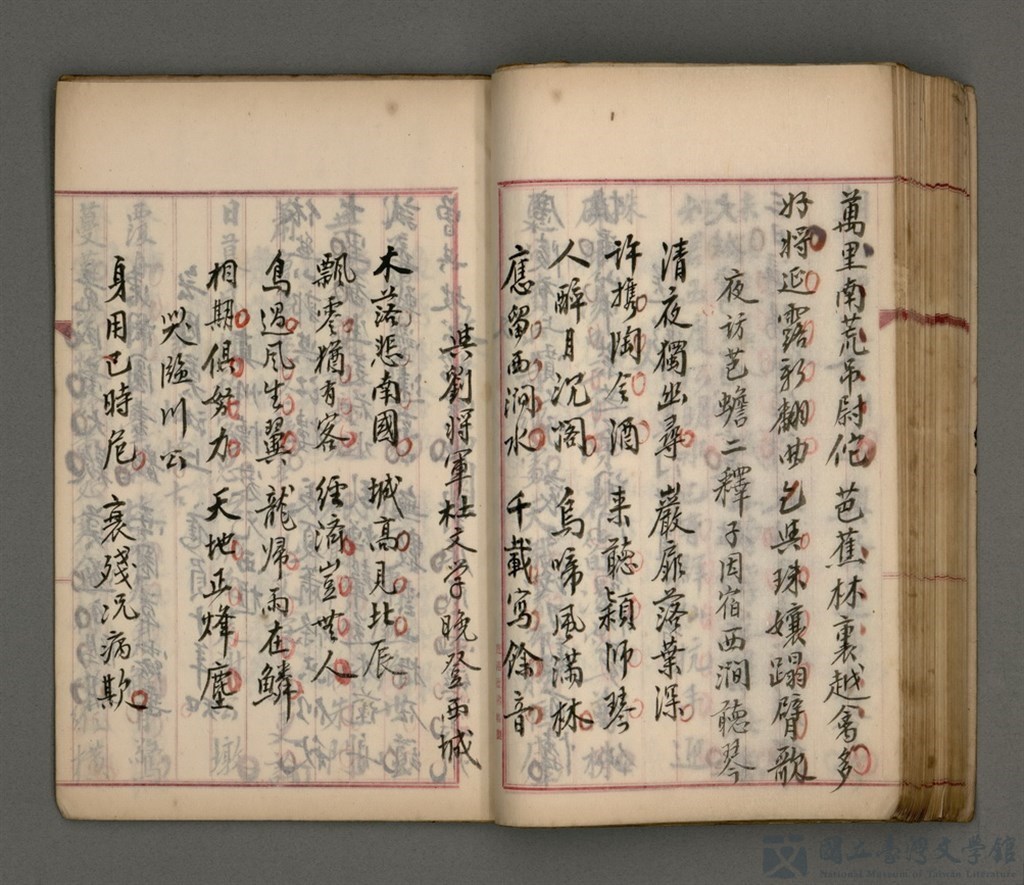 萬里南荒吊尉佗　芭蕉林裏越禽多
好將延露新翻曲　乞與珠孃蹋臂歌
夜訪芭蟾二釋子因宿西澗聽琴
清夜獨幽尋　巖扉落葉深
許攜陶令酒　来聽穎师琴
人醉月沉閣　烏啼風滿林
應留西澗水　千載寫餘音
與劉将軍杜文学晚登西城
木落悲南國　城高見北辰
飄零猶有客　經濟豈無人
鳥過風生翼　龍歸雨在鱗
相期俱努力　天地正烽塵
哭臨川公
身用已時危　衰殘况病欺
國立臺灣文學館
National Museum of Taiwan Literature